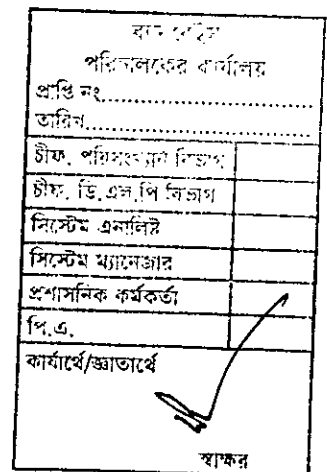 পরিচালকের কার্যালয়
প্রাপ্তি নং..............................
তারিখ..............................
চীফ, পরিসংখ্যান বিভাগ
চীফ, ডি.এল.পি বিভাগ
সিস্টেম এনালিষ্ট
সিস্টেম ম্যানেজার
প্রশাসনিক কর্মকর্তা
পি.এ.
কার্যার্থে/জ্ঞাতার্থে
স্বাক্ষর